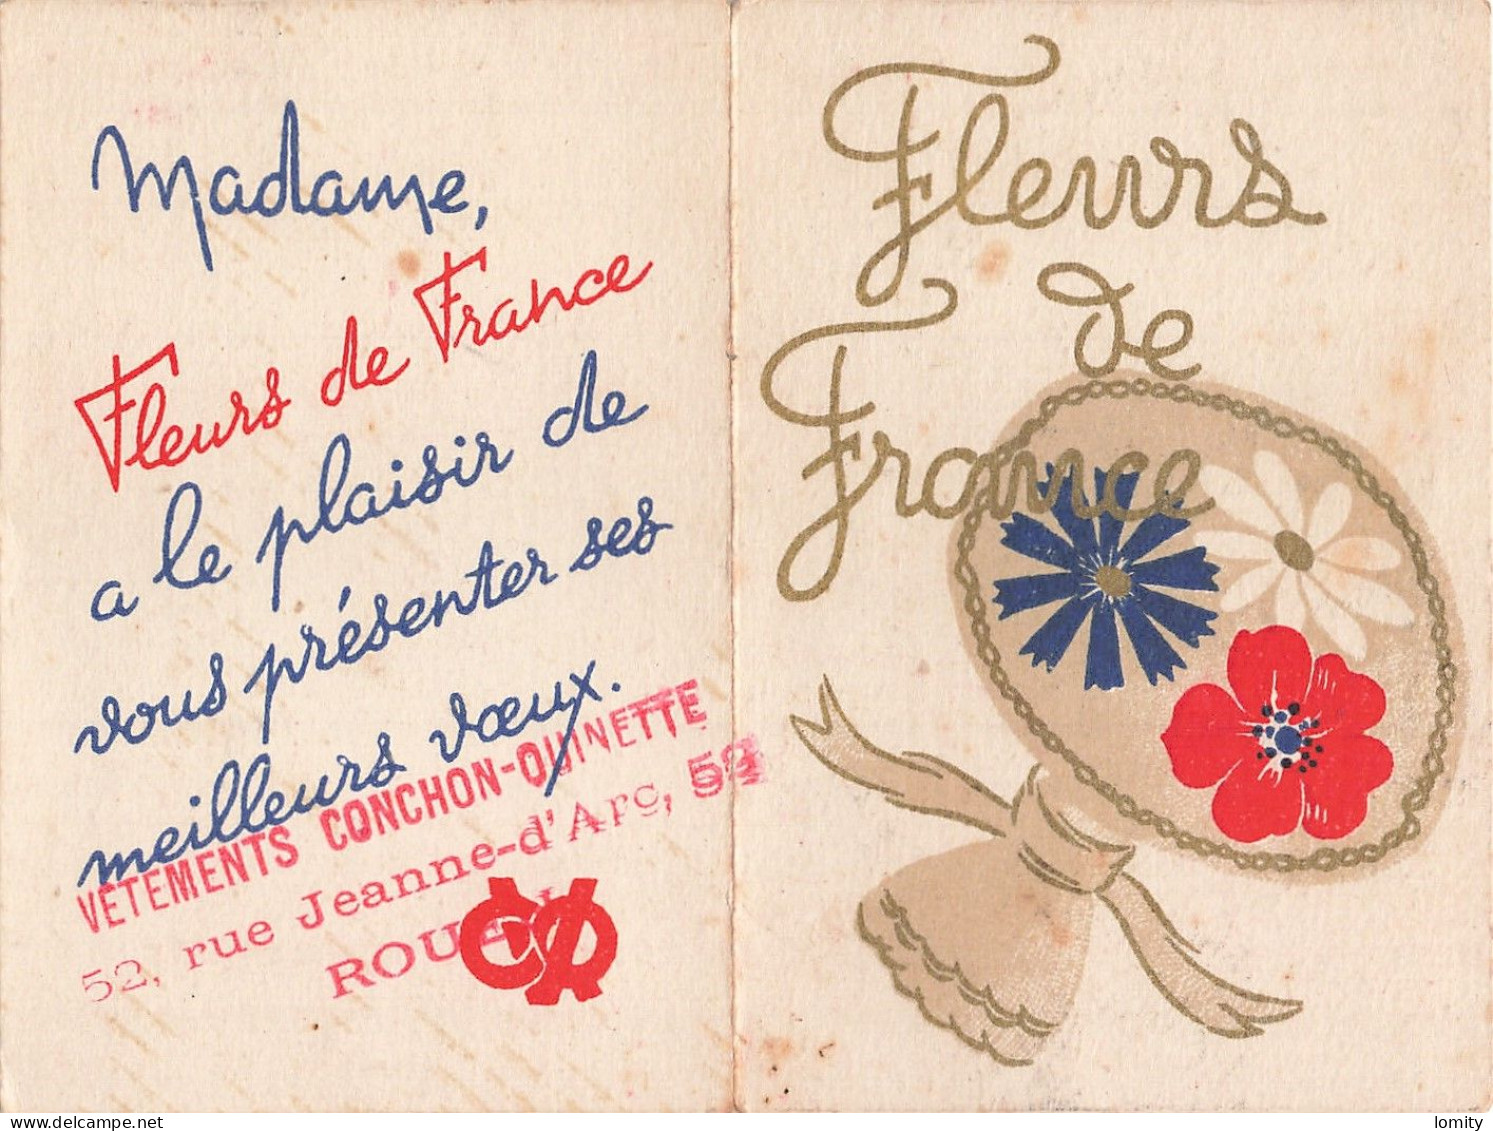 Madame,
Fleurs de France
a le plaisir de
vous présenter ses
meilleurs vœux.
VÊTEMENTS CONCHON-QUINETTE
52, rue Jeanne-d'Arc, 52
ROUEN
Fleurs
de
France
delcampe.net
lomity